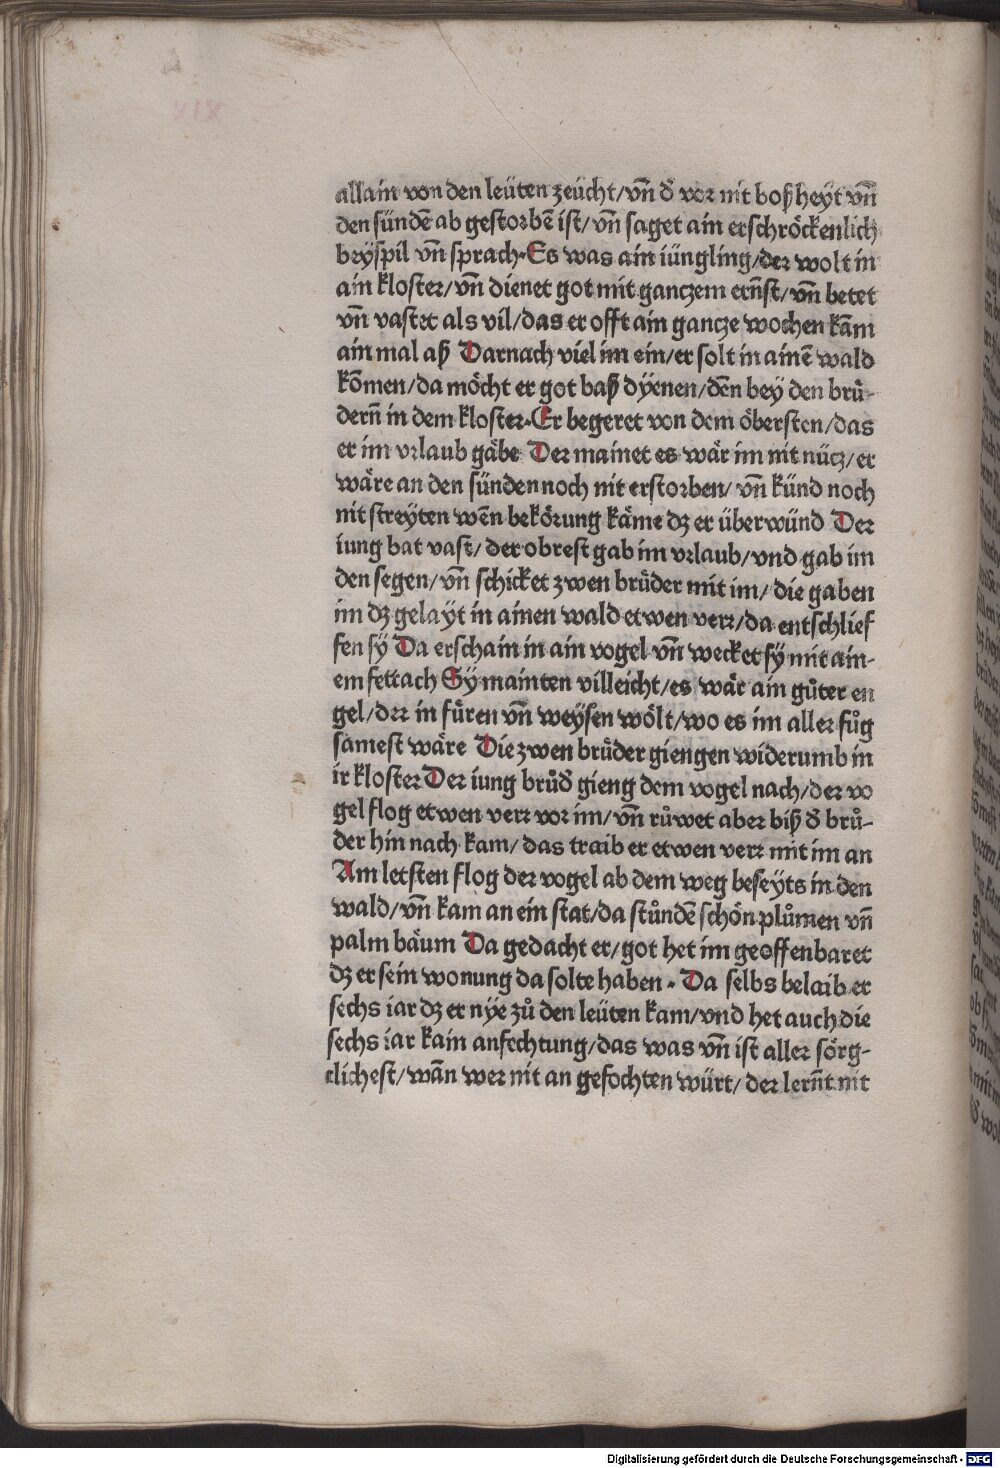 allain von den leüten zeücht/vñ đ vor nit boßheyt vñ
den sündē ab gestorbē ist/vñ saget ain erschröckenlich
beyspil vñ sprach·Es was ain iüngling/der wolt in
ain kloster/vñ dienet got mit ganczem ernst/vñ betet
vñ vastet als vil/das er offt ain gancze wochen kām
ain mal aß Darnach viel im ein/er solt in ainē wald
kōmen/da möcht er got baß dyenen/dēn bey den brů-
dern̄ in dem kloster·Er begeret von dem öbersten/das
er im vrlaub gäbe Der mainet es wär im nit nücz/er
wäre an den sünden noch nit erstorben/ vñ künd noch
nit streyten wēn bekörung käme dz er überwünd Der
iung bat vast/ der obrest gab im vrlaub/vnd gab im
den segen/vñ schicket zwen brůder mit im/ die gaben
im dz gelayt in ainen wald etwen verr/da entschlief
fen sy Da erschain in ain vogel vñ wecket sy mit ain-
em fettach Sy mainten villeicht/es wär ain gůter en
gel/der in füren vñ weysen wölt/wo es im aller fůg
samest wäre Die zwen brůder giengen widerumb in
ir kloster Der iung brůđ gieng dem vogel nach/der vo
gel flog etwen verr vor im/vñ růwet aber biß đ brů-
der hin nach kam/das traib er etwen verr mit im an
Am letsten flog der vogel ab dem weg beseyts in den
wald/vñ kam an ein stat/da stůndē schön plůmen vñ
palm bäum Da gedacht er/got het im geoffenbaret
dz er sein wonung da solte haben · Da selbs belaib er
sechs iar dz er nÿe zů den leüten kam/vnd het auch die
sechs iar kain anfechtung/das was vñ ist aller sörg-
clichest/wān wer nit an gefochten würt/ der lern̄t nit
Digitalisierung gefördert durch die Deutsche Forschungsgemeinschaft - DFG